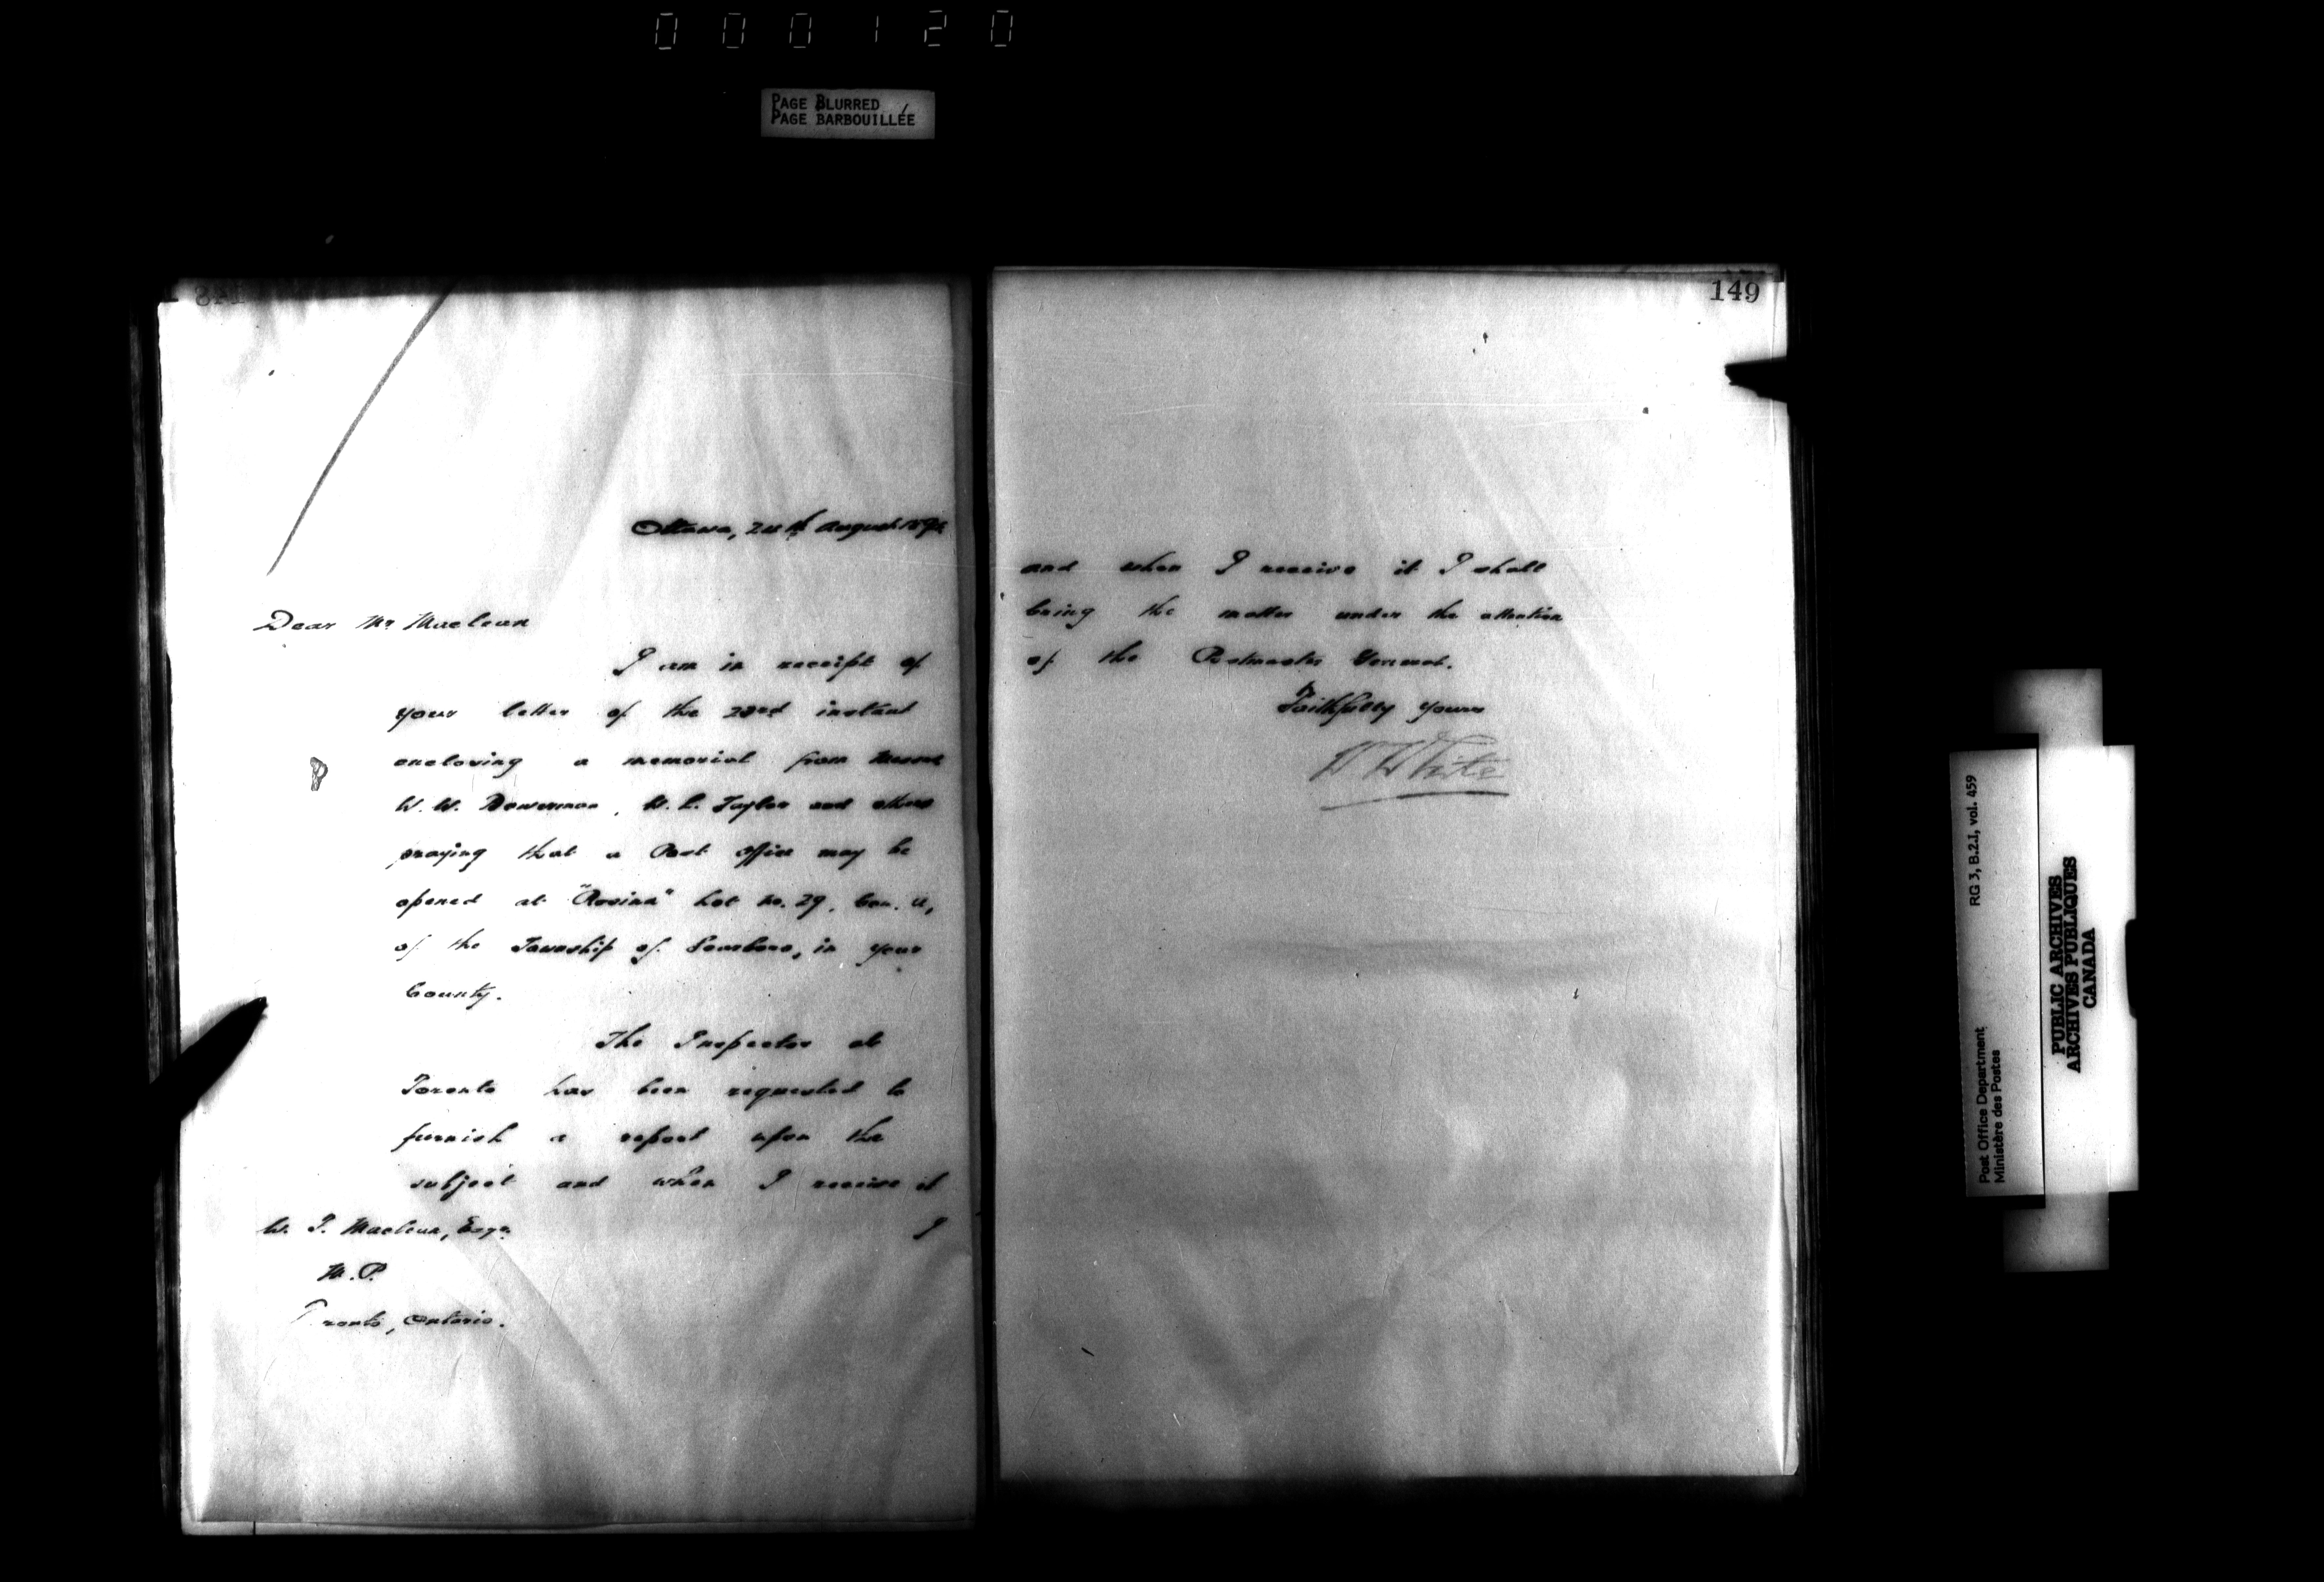 000120
PAGE BLURRED
PAGE BARBOUILLÉE
148
Ottawa, 24th August 189
Dear Mr Maclean
I am in receipt of
your letter of the 23rd instant
enclosing a memorial from Messrs
W. W. Bowerman, W. L. Taylor and others
praying that a Post Office may be
opened at "Rosina" Lot No. 29, Con.
of the Township of Scarboro, in your
County.
The Inspector at
Toronto has been requested to
furnish a report upon the
subject and when I receive it
I
W. F. Maclean, Esqr.
M.P.
Toronto, Ontario.
149
and when I receive it I shall
bring the matter under the attention
of the Postmaster General.
Faithfully yours
W White
Post Office Department
Ministère des Postes
RG 3, B.2.1, vol. 459
PUBLIC ARCHIVES
ARCHIVES PUBLIQUES
CANADA